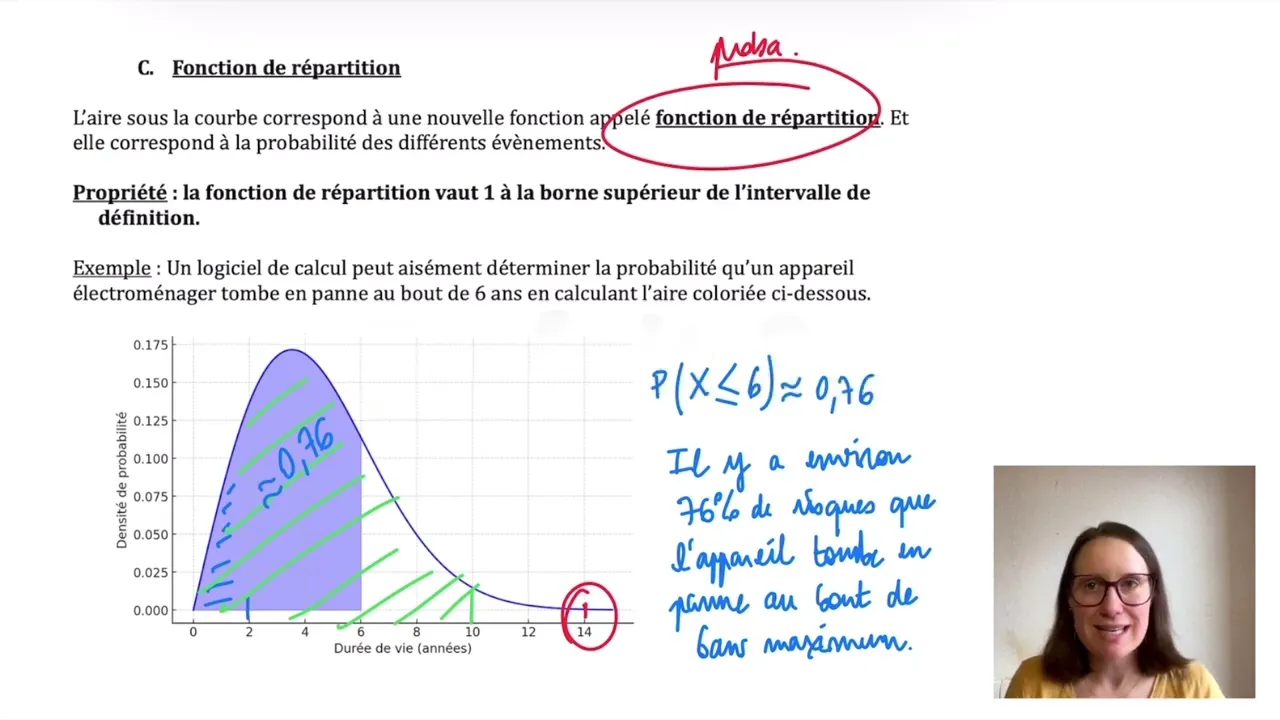 proba.
C. Fonction de répartition
L’aire sous la courbe correspond à une nouvelle fonction appelé fonction de répartition. Et
elle correspond à la probabilité des différents évènements.
Propriété : la fonction de répartition vaut 1 à la borne supérieur de l’intervalle de
définition.
Exemple : Un logiciel de calcul peut aisément déterminer la probabilité qu’un appareil
électroménager tombe en panne au bout de 6 ans en calculant l’aire coloriée ci-dessous.
Densité de probabilité
0.175
0.150
0.125
0.100
0.075
0.050
0.025
0.000
≈0,76
1
0 2 4 6 8 10 12 14
Durée de vie (années)
P(X≤6)≈0,76
Il y a environ
76% de risques que
l'appareil tombe en
panne au bout de
6 ans maximum.